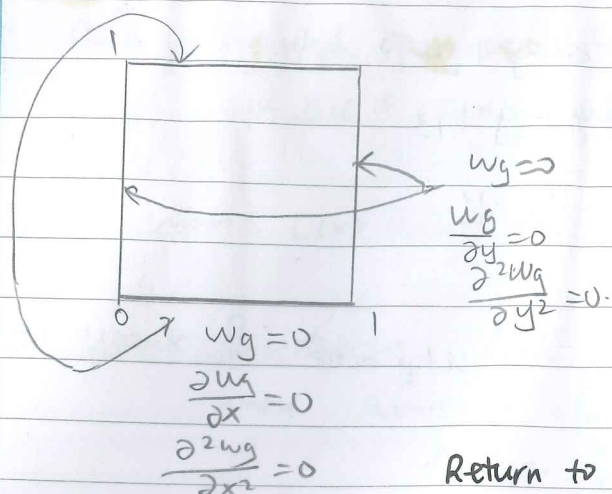 1
wg=0
wg/∂y=0
∂²wg/∂y²=0.
0
1
wg=0
∂wg/∂x=0
∂²wg/∂x²=0
Return to